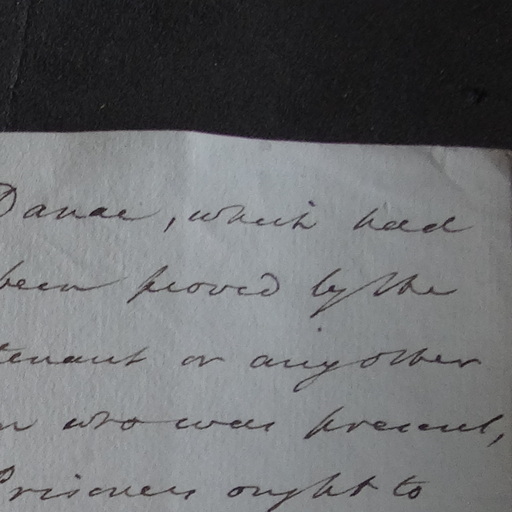 Danae, which had
been proved by the
tenant or any other
n who was present,
Prisoners ought to